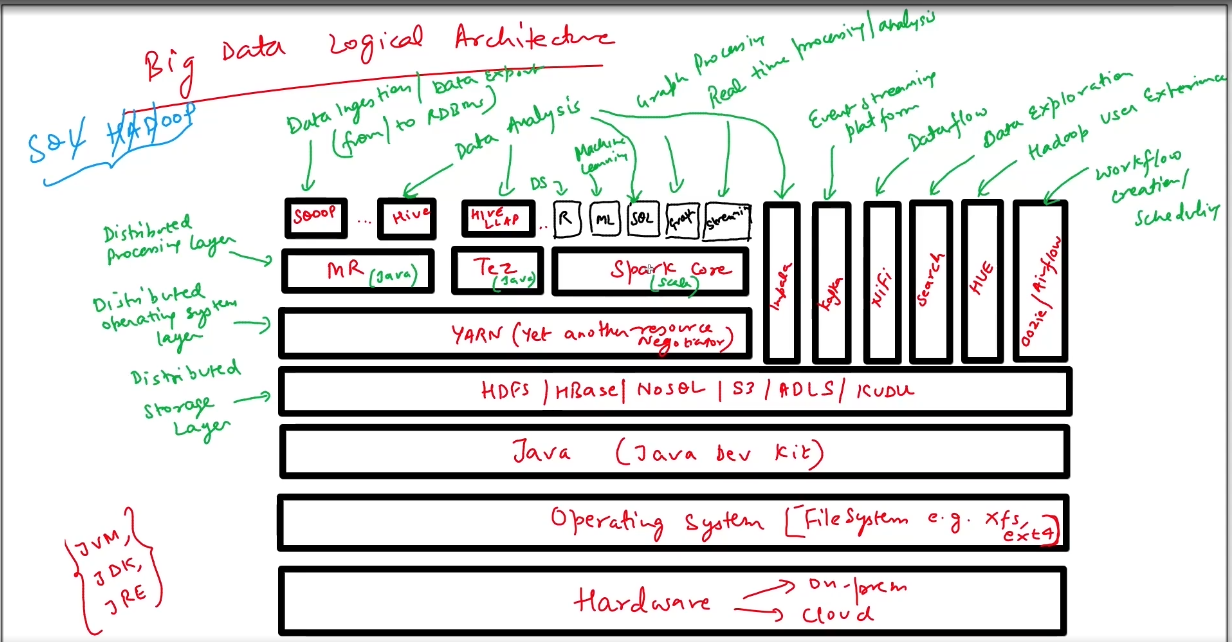 Big Data Logical Architecture
SQL HADOOP
Data Ingestion/Data Export
(from/to RDBMS)
Data Analysis
Machine
Learning
DS
Graph Processing
Real time processing/analysis
Event streaming
platform
Dataflow
Data Exploration
Hadoop User Experience
Workflow
creation/
scheduling
SQOOP ... Hive
HIVE
LLAP ..
R
ML
SQL
Graph
Streaming
Distributed
Processing Layer
MR (Java)
Tez
(Java)
Spark Core
(Scala)
Impala
Kafka
NiFi
Search
HUE
Oozie/Airflow
Distributed
operating system
layer
YARN (Yet another resource
Negotiator)
Distributed
Storage
Layer
HDFS / HBase / NoSQL / S3 / ADLS / KUDU
Java (Java Dev Kit)
Operating System [FileSystem e.g. xfs,
ext4]
{JVM,
JDK,
JRE}
Hardware
on-prem
cloud